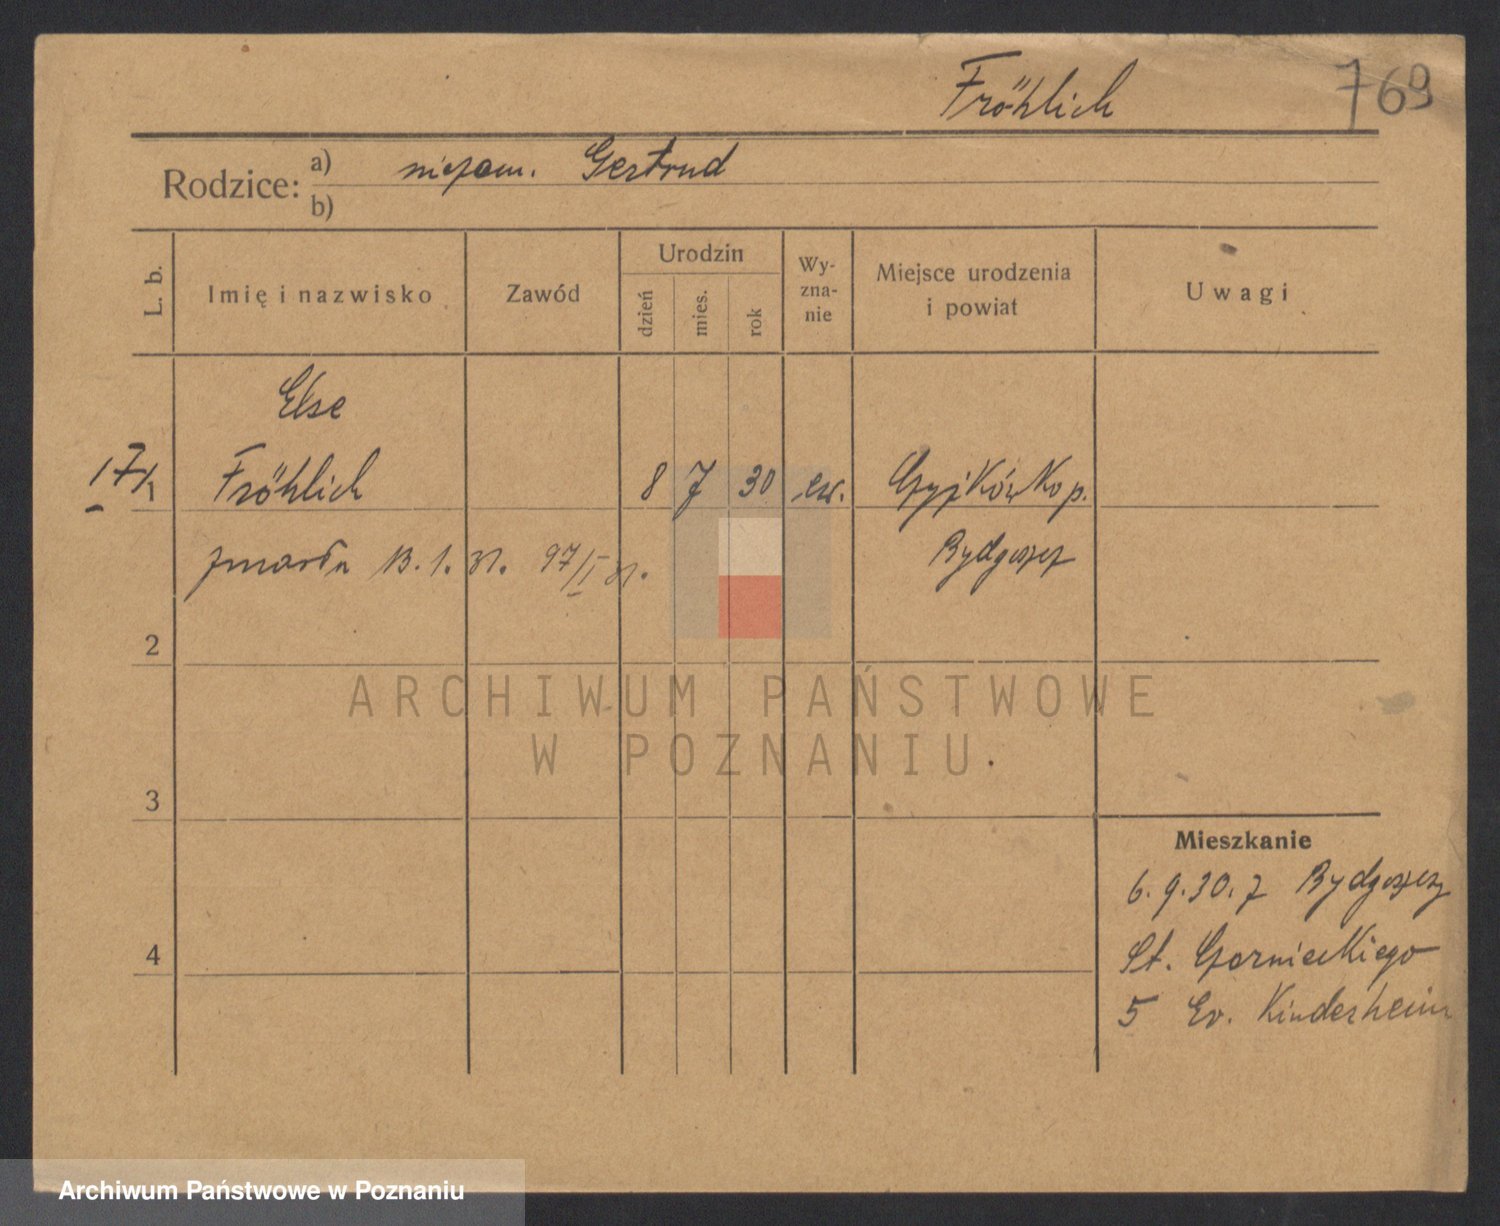 Fröhlich 769
Rodzice: a) niezam. Gertrud
b)
L. b. Imię i nazwisko Zawód Urodzin dzień mies. rok Wy-zna-nie Miejsce urodzenia i powiat Uwagi
Else
17/1 Fröhlich 8 7 30 ew. Czyżkówko p.
zmarła 13. 1. 31. 97/I 31. Bydgoszcz
2
ARCHIWUM PAŃSTWOWE
W POZNANIU
3
Mieszkanie
6. 9. 30. z Bydgoszczy
4 St. Czarnieckiego
5 Ev. Kinderheim
Archiwum Państwowe w Poznaniu